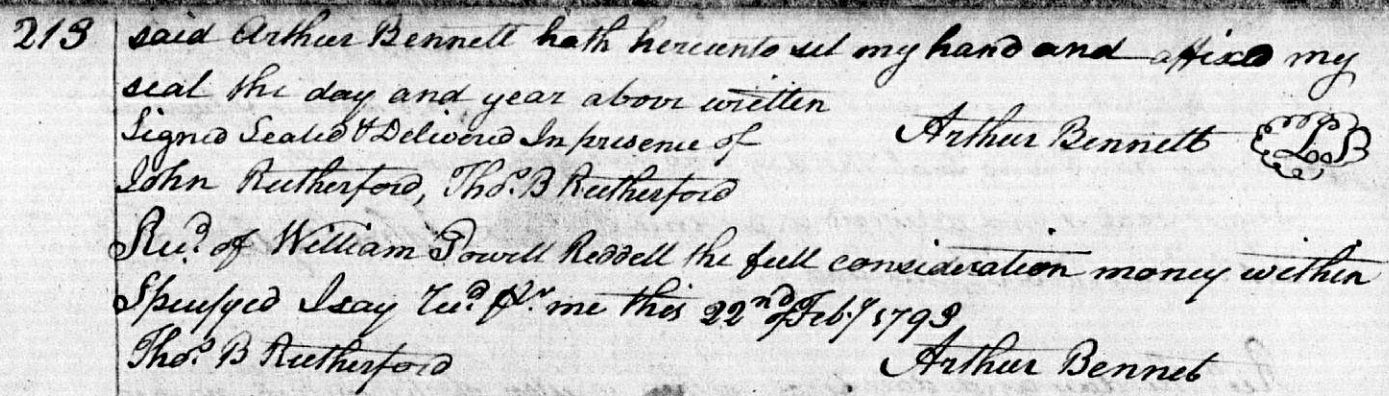 213 said Arthur Bennett hath hereunto set my hand and affixed my
seal the day and year above written
Signed Sealed & Delivered In presence of Arthur Bennett LS
John Rutherford, Thos. B Rutherford
Recd. of William Powell Reddell the full consideration money within
Specifyed I say recd. pr. me this 22nd of Feby 1793
Thos. B Rutherford Arthur Bennet